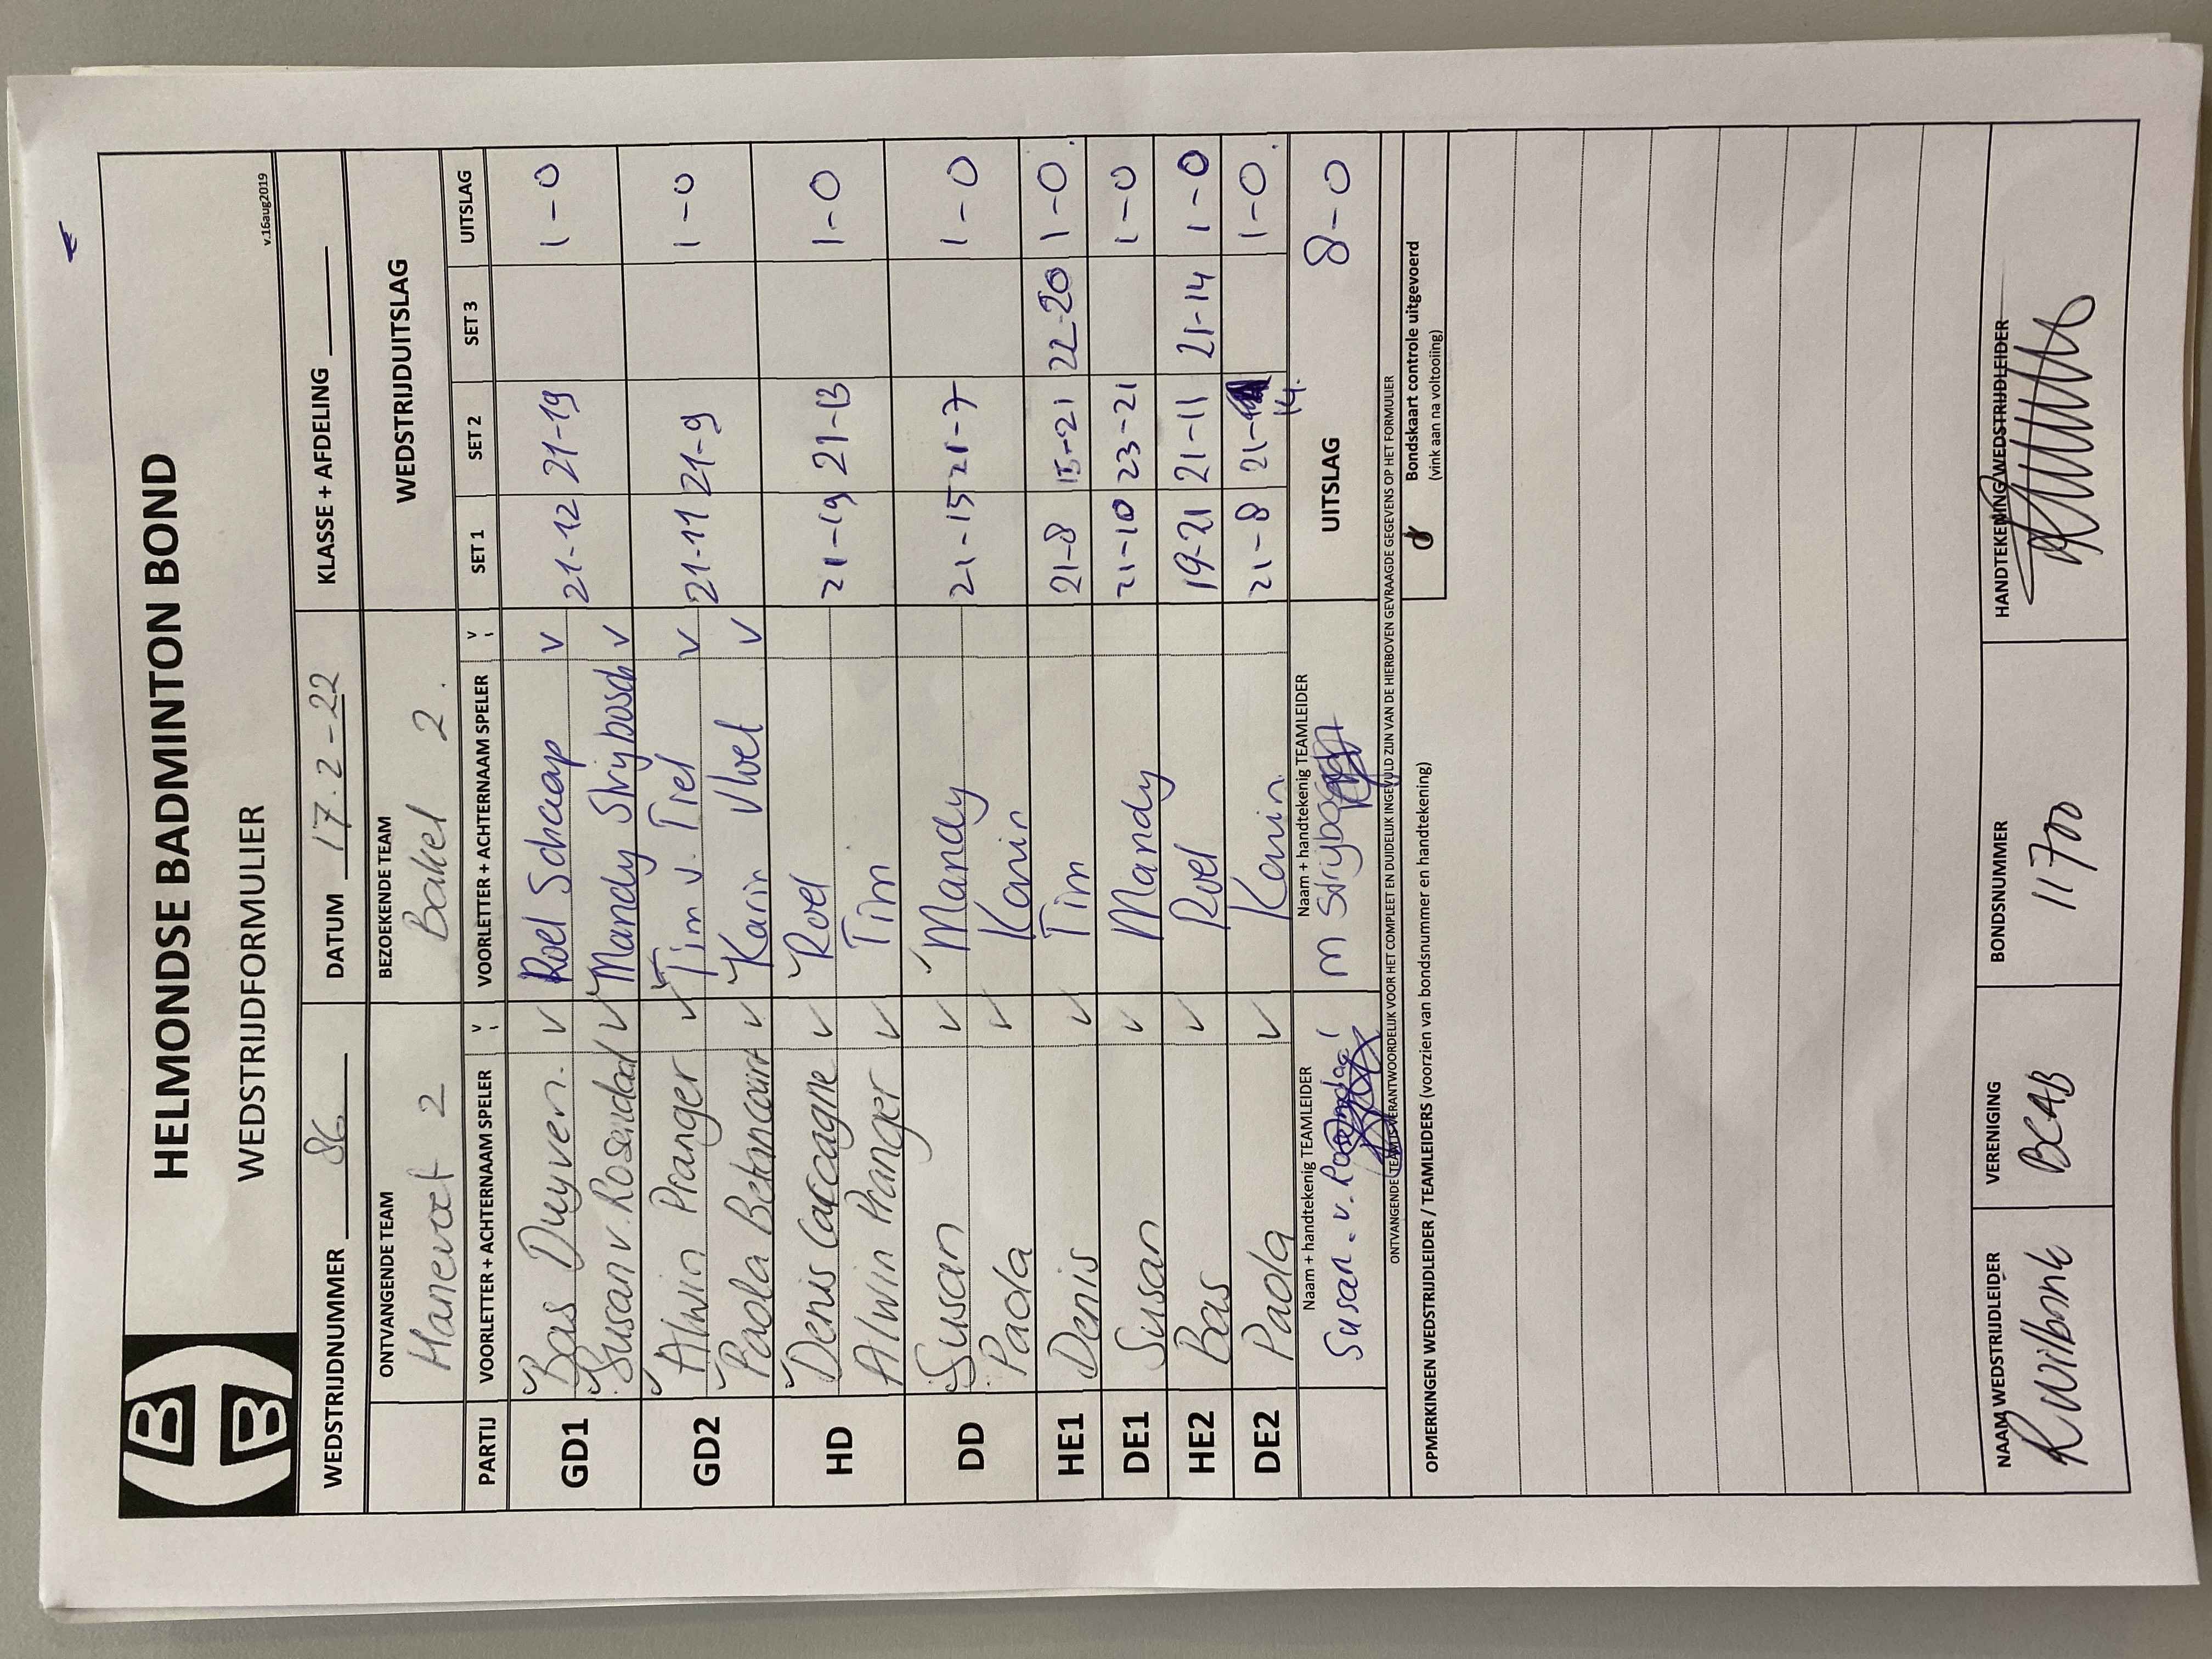 HELMONDSE BADMINTON BOND
WEDSTRIJDFORMULIER
v.16aug2019
WEDSTRIJDNUMMER 86 DATUM 17-2-22 KLASSE + AFDELING
ONTVANGENDE TEAM BEZOEKENDE TEAM WEDSTRIJDUITSLAG
Hanevoet 2 Bakel 2.
PARTIJ VOORLETTER + ACHTERNAAM SPELER V VOORLETTER + ACHTERNAAM SPELER V SET 1 SET 2 SET 3 UITSLAG
GD1 Bas Duyven. V Roel Schaap V 21-12 21-19 1-0
Susan v. Rosendaal V Mandy Strijbosch V
GD2 Alwin Pranger V Tim v. Tiel V 21-11 21-9 1-0
Paola Betancourt V Karin Vloet V
HD Denis Caccagne V Roel 21-19 21-13 1-0
Alwin Pranger V Tim
DD Susan V Mandy 21-15 21-7 1-0
Paola V Karin
HE1 Denis V Tim 21-8 15-21 22-20 1-0.
DE1 Susan V Mandy 21-10 23-21 1-0
HE2 Bas V Roel 19-21 21-11 21-14 1-0
DE2 Paola V Karin 21-8 21-14. 1-0.
Naam + handtekenig TEAMLEIDER Naam + handtekenig TEAMLEIDER UITSLAG 8-0
Susan. v. Roosendaal m Strijbosch
ONTVANGENDE TEAM IS VERANTWOORDELIJK VOOR HET COMPLEET EN DUIDELIJK INGEVULD ZIJN VAN DE HIERBOVEN GEVRAAGDE GEGEVENS OP HET FORMULIER
OPMERKINGEN WEDSTRIJDLEIDER / TEAMLEIDERS (voorzien van bondsnummer en handtekening)
Bondskaart controle uitgevoerd
(vink aan na voltooiing)
NAAM WEDSTRIJDLEIDER VERENIGING BONDSNUMMER HANDTEKENING WEDSTRIJDLEIDER
R Wilbonk BCAB 11700